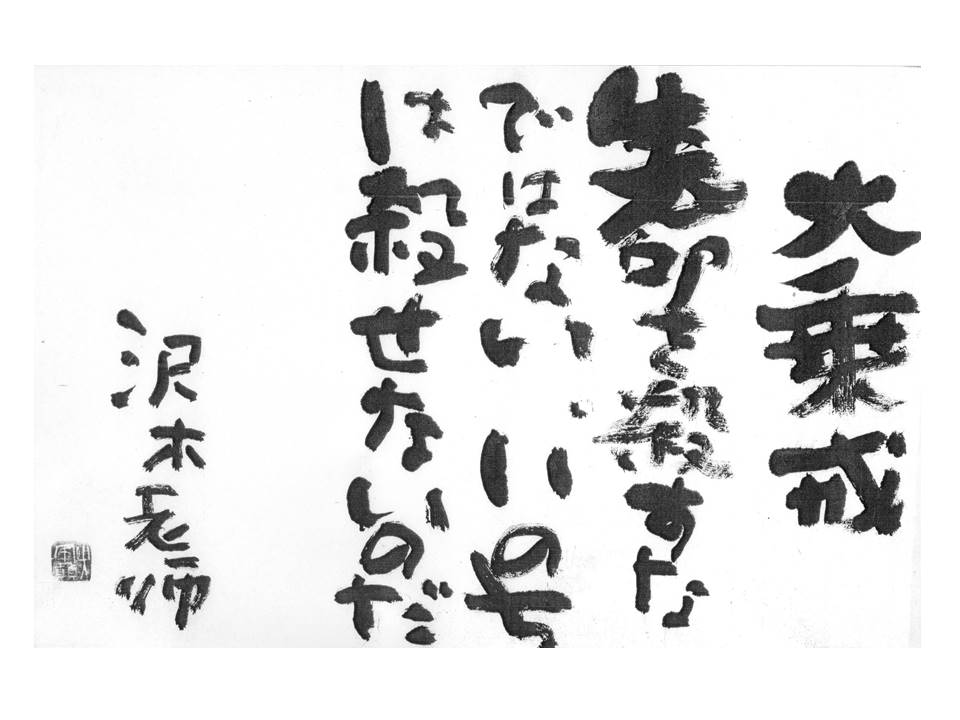 大乗戒
生命を殺すな
ではない、いのち
は殺せないのだ
沢木老師